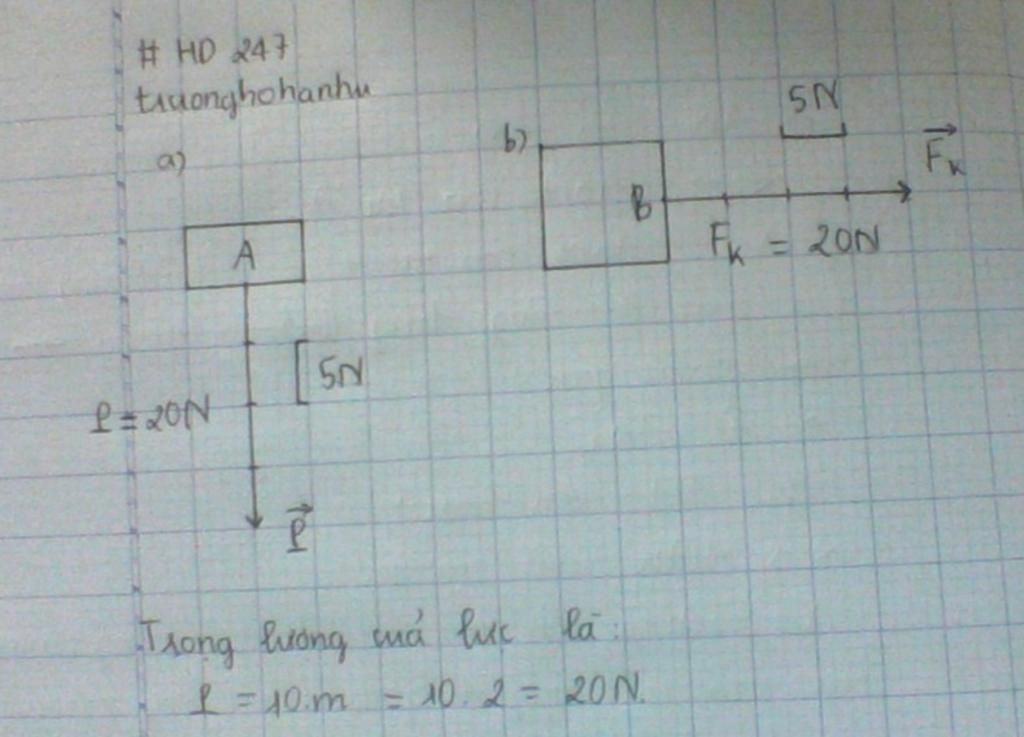 # HD 247
truonghohanhu
a)
A
5N
P = 20N
P
b)
5N
Fk
B
Fk = 20N
Trọng lượng cuả lực là:
P = 10.m = 10. 2 = 20N.